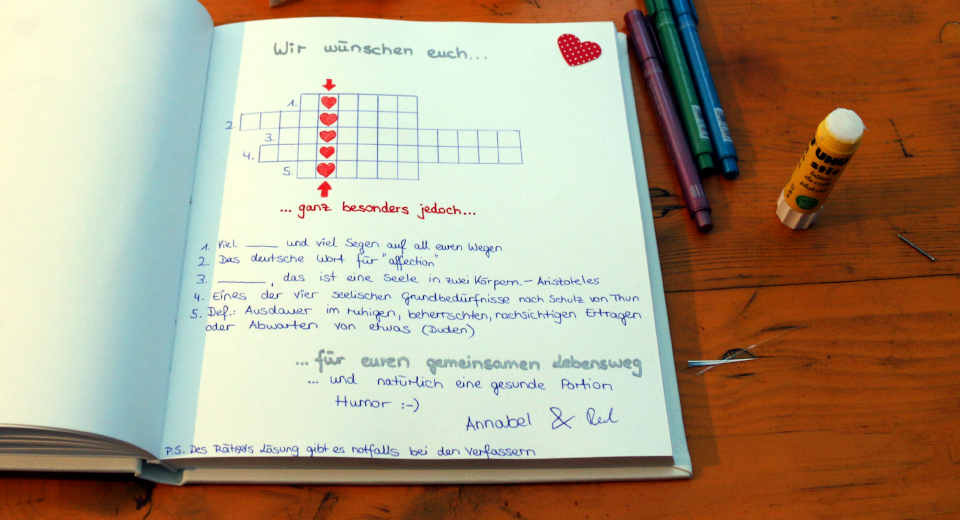 Wir wünschen euch...
1.
2.
3.
4.
5.
... ganz besonders jedoch...
1. Viel _____ und viel Segen auf all euren Wegen
2. Das deutsche Wort für "affection"
3. _____, das ist eine Seele in zwei Körpern. - Aristoteles
4. Eines der vier seelischen Grundbedürfnisse nach Schulz von Thun
5. Def.: Ausdauer im ruhigen, beherrschten, nachsichtigen Ertragen
oder Abwarten von etwas (Duden)
... für euren gemeinsamen Lebensweg
... und natürlich eine gesunde Portion
Humor :-)
Annabel &
P.S. Des Rätsels Lösung gibt es notfalls bei den Verfassern